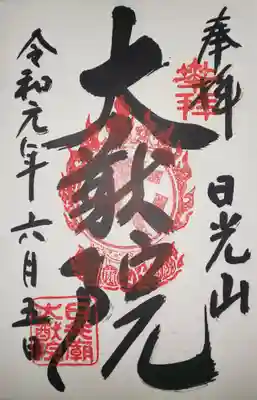 奉拝 日光山
大猷院
令和元年六月五日
日光廟
大猷院